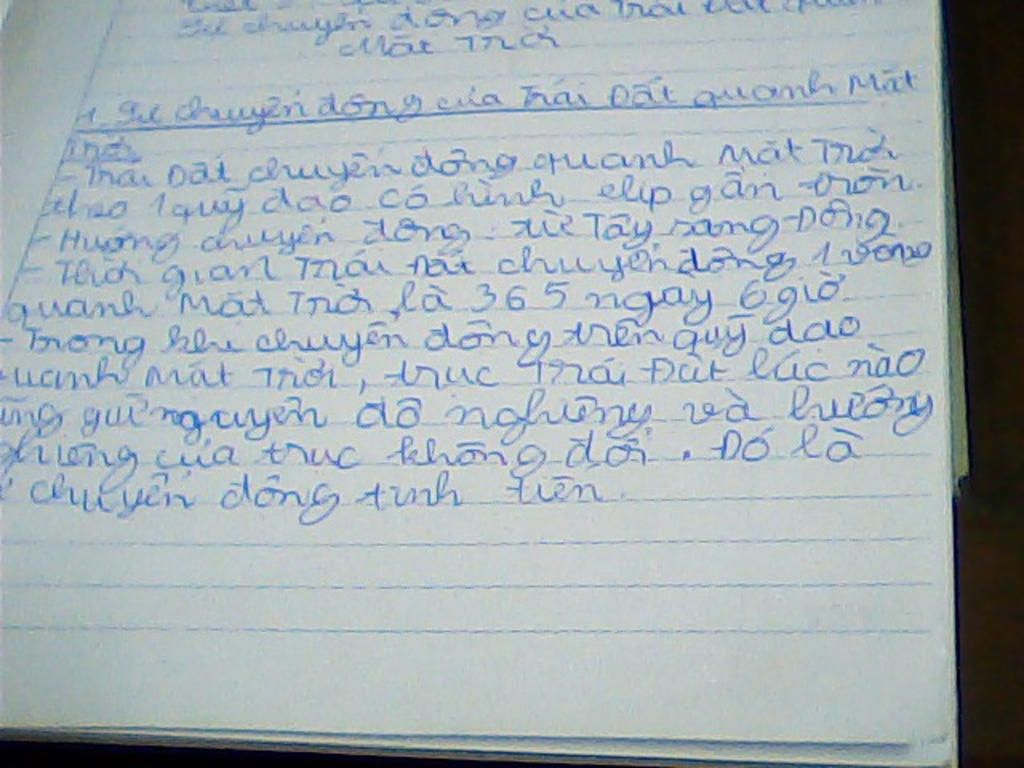 Sự chuyển động của Trái Đất quanh
Mặt Trời
1. Sự chuyển động của Trái Đất quanh Mặt
Trời
- Trái Đất chuyển động quanh Mặt Trời
theo 1 quỹ đạo có hình elip gần tròn.
- Hướng chuyển động: từ Tây sang Đông.
- Thời gian Trái Đất chuyển động 1 vòng
quanh Mặt Trời là 365 ngày 6 giờ.
- Trong khi chuyển động trên quỹ đạo
quanh Mặt Trời, trục Trái Đất lúc nào
cũng giữ nguyên độ nghiêng và hướng
nghiêng của trục không đổi. Đó là
chuyển động tịnh tiến.